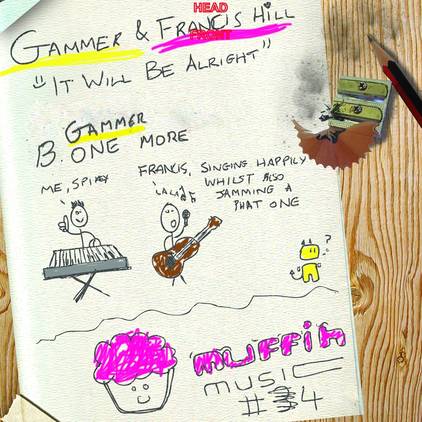 HEAD
FRONT
GAMMER & FRANCIS HILL
"IT WILL BE ALRIGHT"
GAMMER
B. ONE MORE
ME, SPIKEY
FRANCIS, SINGING HAPPILY
WHILST ALSO
JAMMING A
PHAT ONE
LALALA
?
muffin
MUSIC
#34